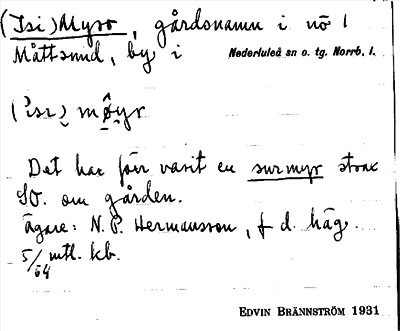 (Isi)Myro, gårdsnamn i nö 1
Måttsund, by i Nederluleå sn o. tg. Norrb. l.
Det har förr varit en surmyr strax
SO. om gården.
Ägare: N. P. Hermansson, f d. häg.
5/64 mtl. kb.
EDVIN BRÄNNSTRÖM 1931